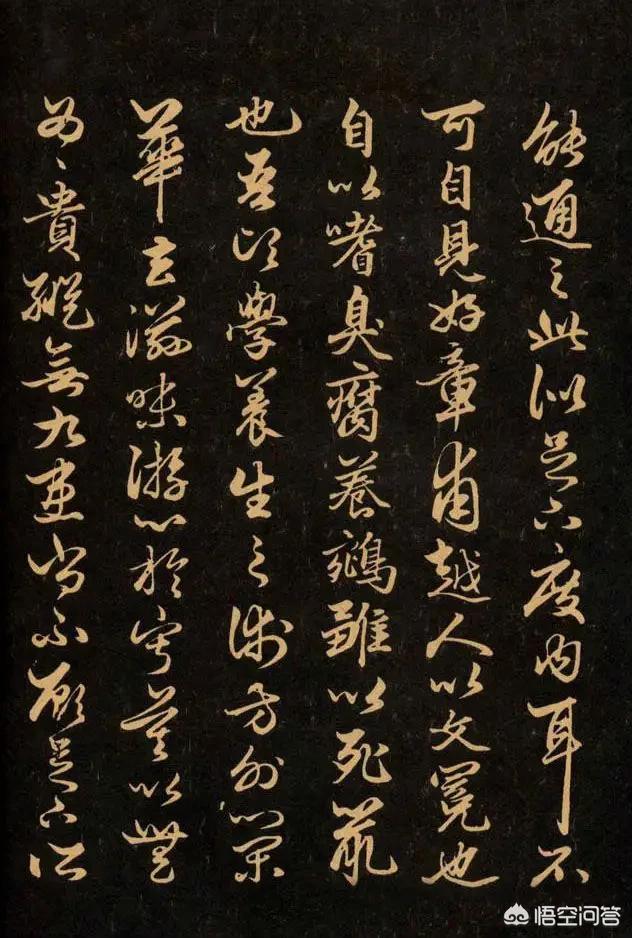 能通之此似足下度内耳不
可自見好章甫越人以文冕也
自以嗜臭腐養鵷雛以死鼠
也吾頃學養生之術方外榮
華去滋味游心於寂莫以無
為〻貴縱無九患尚不顧足下所
悟空问答